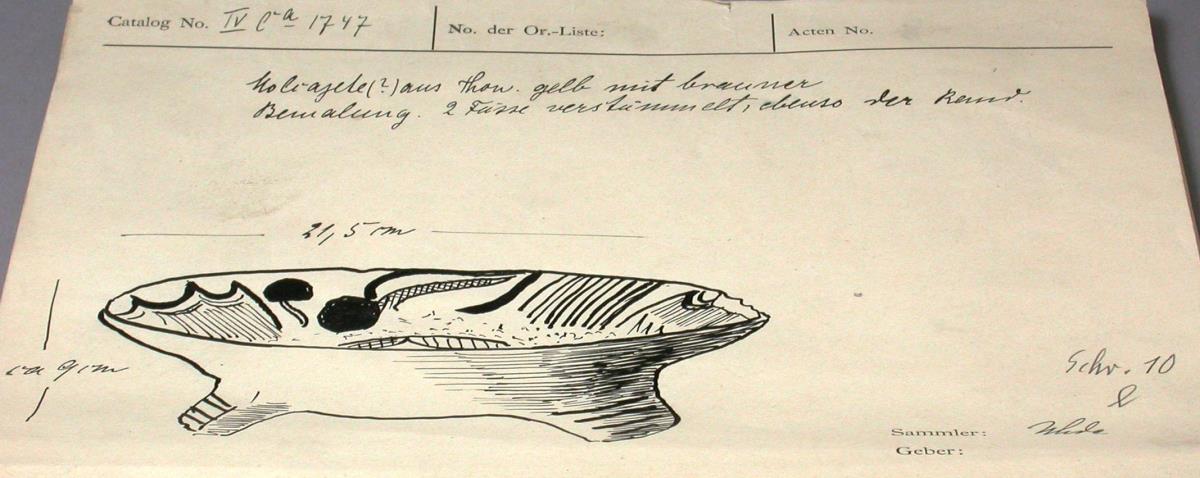 Catalog No. IV Ca 1747
No. der Or.-Liste:
Acten No.
Molcajete(?) aus Thon. gelb mit brauner
Bemalung. 2 Füsse verstümmelt, ebenso der Rand.
21,5 cm
ca 9 cm
Schr. 10
Sammler: Uhde
Geber: